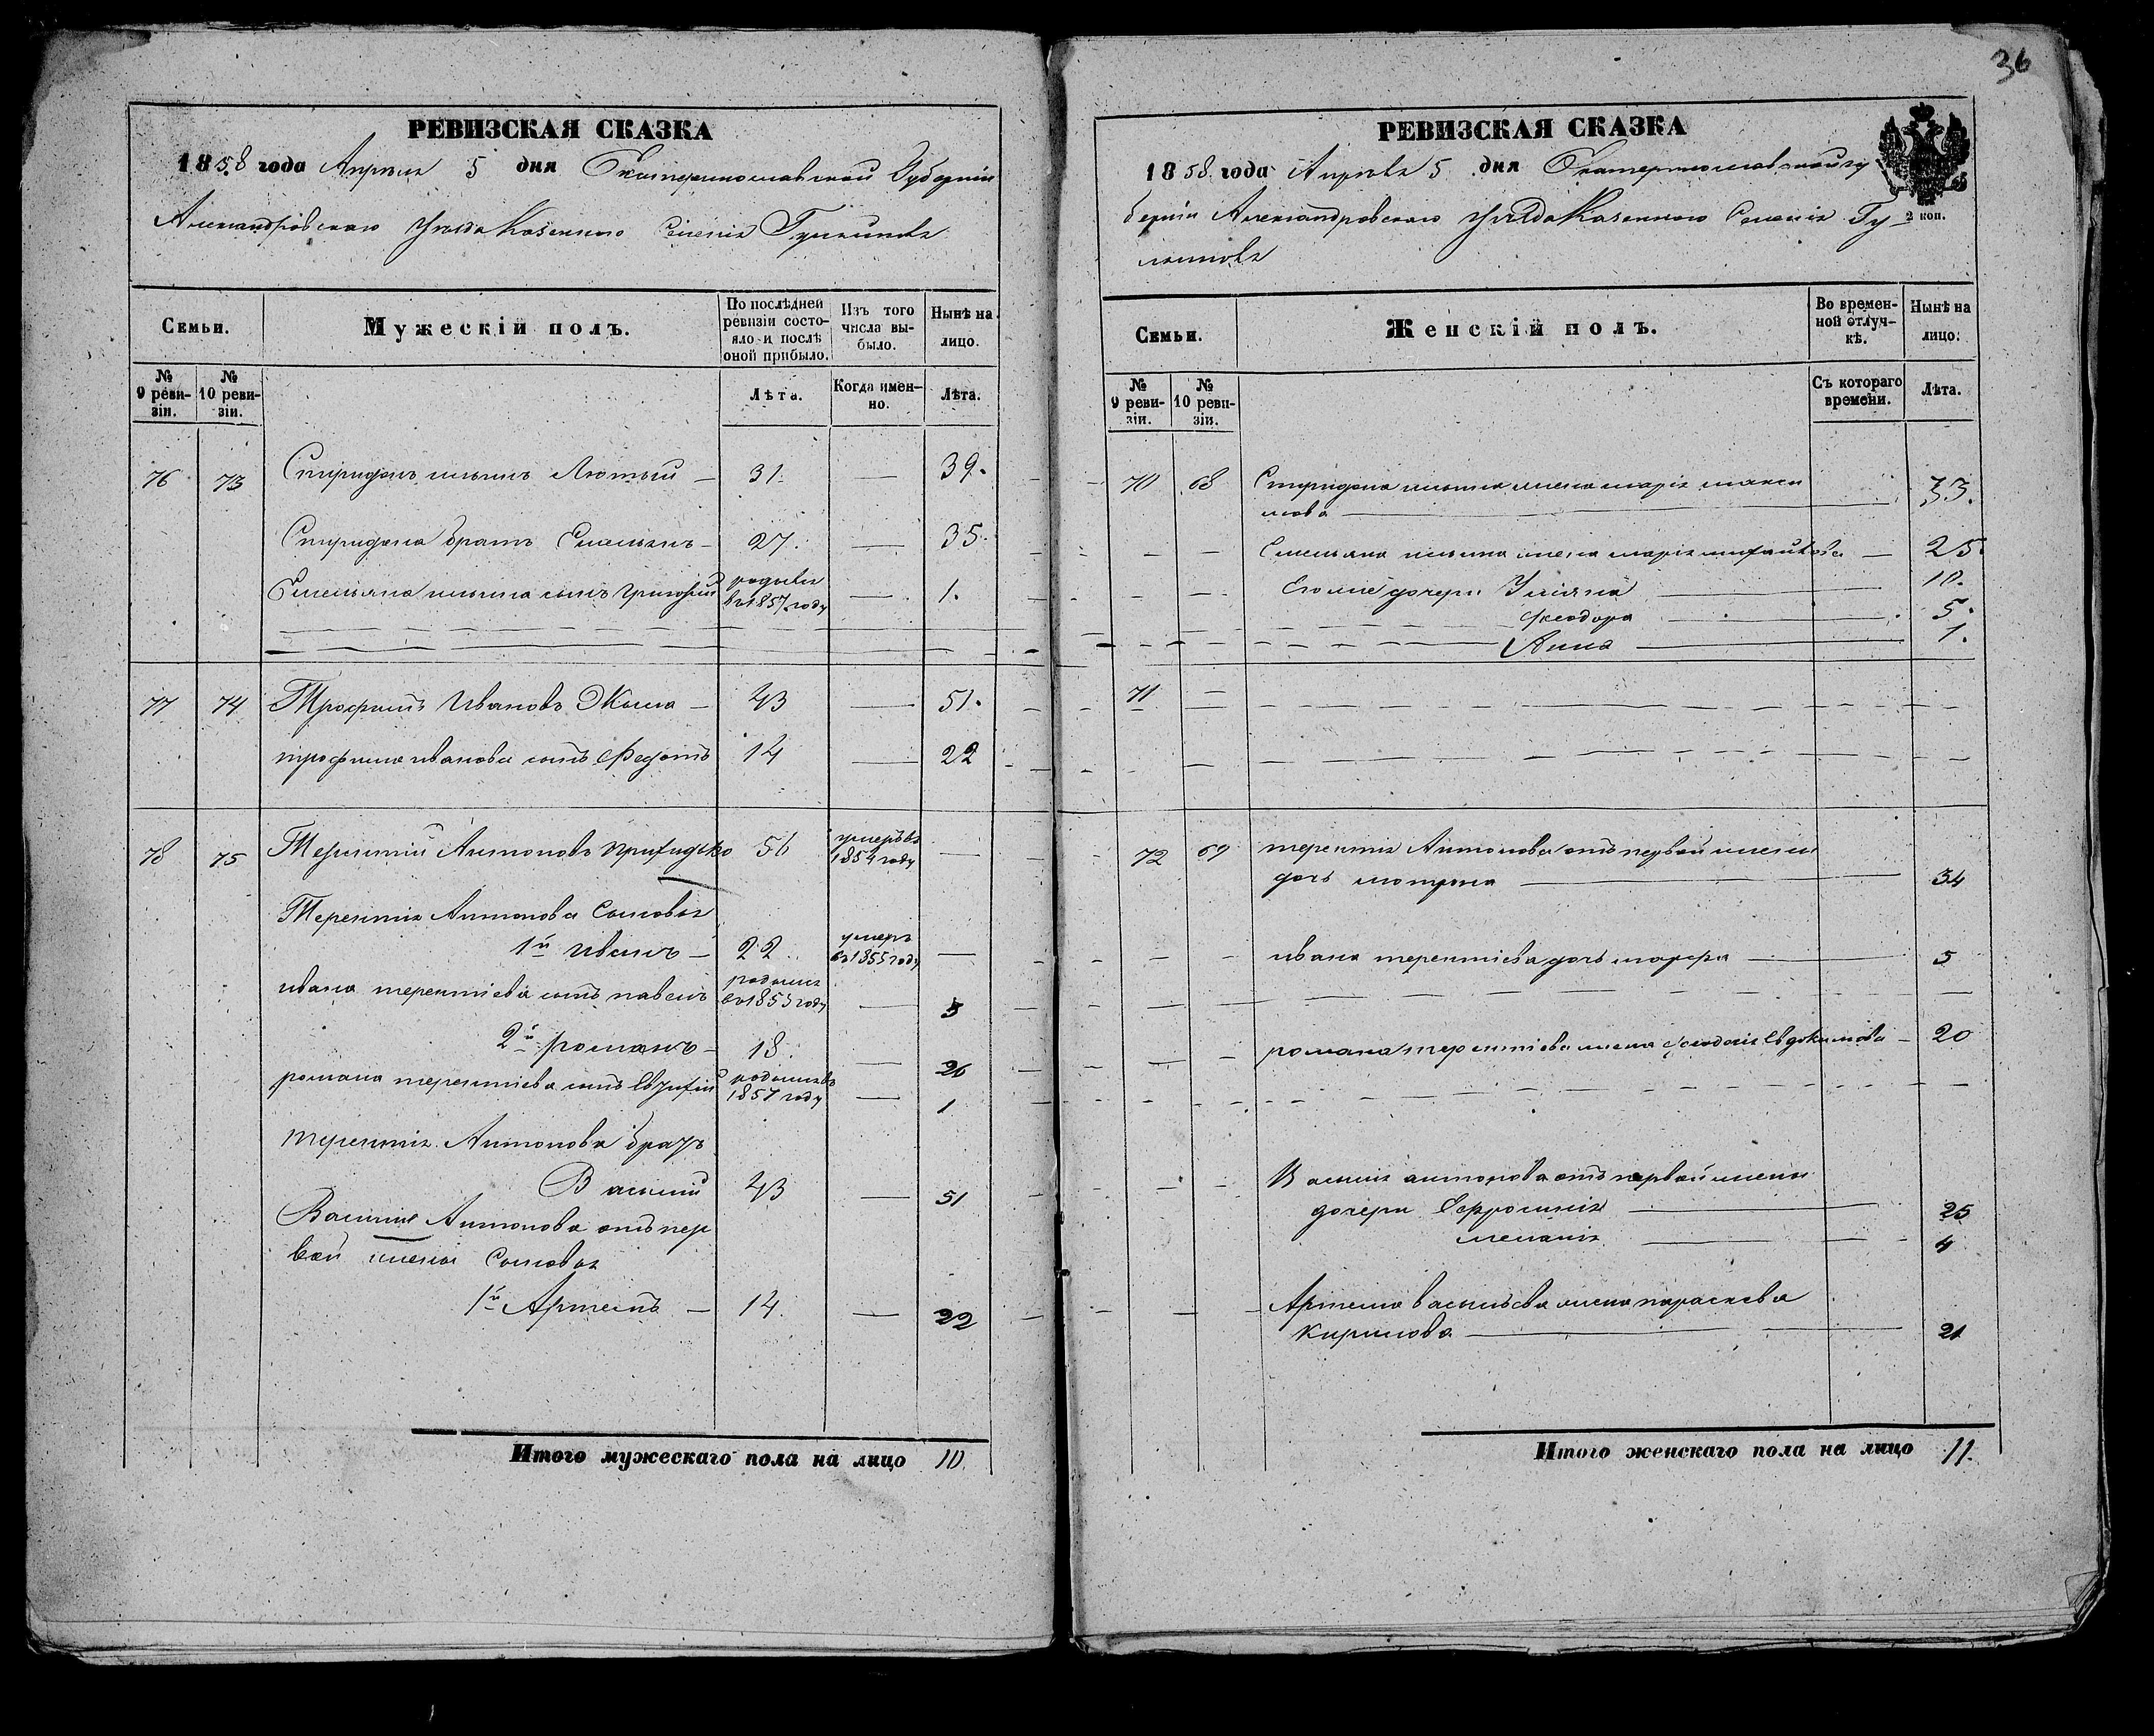 36
РЕВИЗСКАЯ СКАЗКА
1858 года Апреля 5 дня Екатеринославской Губернии
Александровскаго Уезда Казеннаго Селенія
Семьи.
Мужескій полъ.
По послѣдней ревизіи состояло и послѣ оной прибыло.
Изъ того числа выбыло.
Нынѣ на лицо.
№ 9 ревизіи.
№ 10 ревизіи.
Лѣта.
Когда именно.
Лѣта.
76 73 Спиридонъ ильинъ Лютый — 31. — 39.
Спиридона братъ Емельянъ — 27. — 35.
Емельяна ильина сынъ григорій родился в 1857 году — 1.
77 74 Трофимъ Ивановъ — 43 — 51.
трофима иванова сынъ Федотъ 14 — 22
78 75 Терентій Антоновъ 56 умеръ въ 1854 году —
Терентія Антонова Сыновья
1й иванъ — 22. умеръ въ 1855 году —
ивана терентіева сынъ павелъ родился во 1853 году — 5
2й романъ — 18. — 26
романа терентіева сынъ родился въ 1857 году — 1
терентія Антонова братъ
Василій 43 — 51
Василия Антонова отъ пер
вой жены Сыновья
1й Артемъ — 14. — 22
Итого мужескаго пола на лицо 10.
РЕВИЗСКАЯ СКАЗКА
1858 года Апрѣля 5 дня Екатеринославской гу
берніи Александровскаго Уезда Казеннаго Селенія Гу
2 коп.
Семьи.
Женскій полъ.
Во временной отлучкѣ.
Нынѣ на лицо.
№ 9 ревизіи.
№ 10 ревизіи.
Съ котораго времени.
Лѣта.
70 68 Спиридона ильина жена марія макси
мова — 33.
Емельяна ильина жена марія михайлова — 25.
Его же дочери Уліяна — 10.
Феодора — 5.
Анна — 1.
71 —
72 69 терентія Антонова отъ первой жены
дочь мотрона — 34
ивана терентіева дочь марфа — 5
романа терентіева жена феодосія Евдокимова — 20
Василія антонова отъ первой жены
дочери Евфросинія — 25
меланія — 4
Артема васильева жена параскева
Кирилова — 21
Итого женскаго пола на лицо 11.